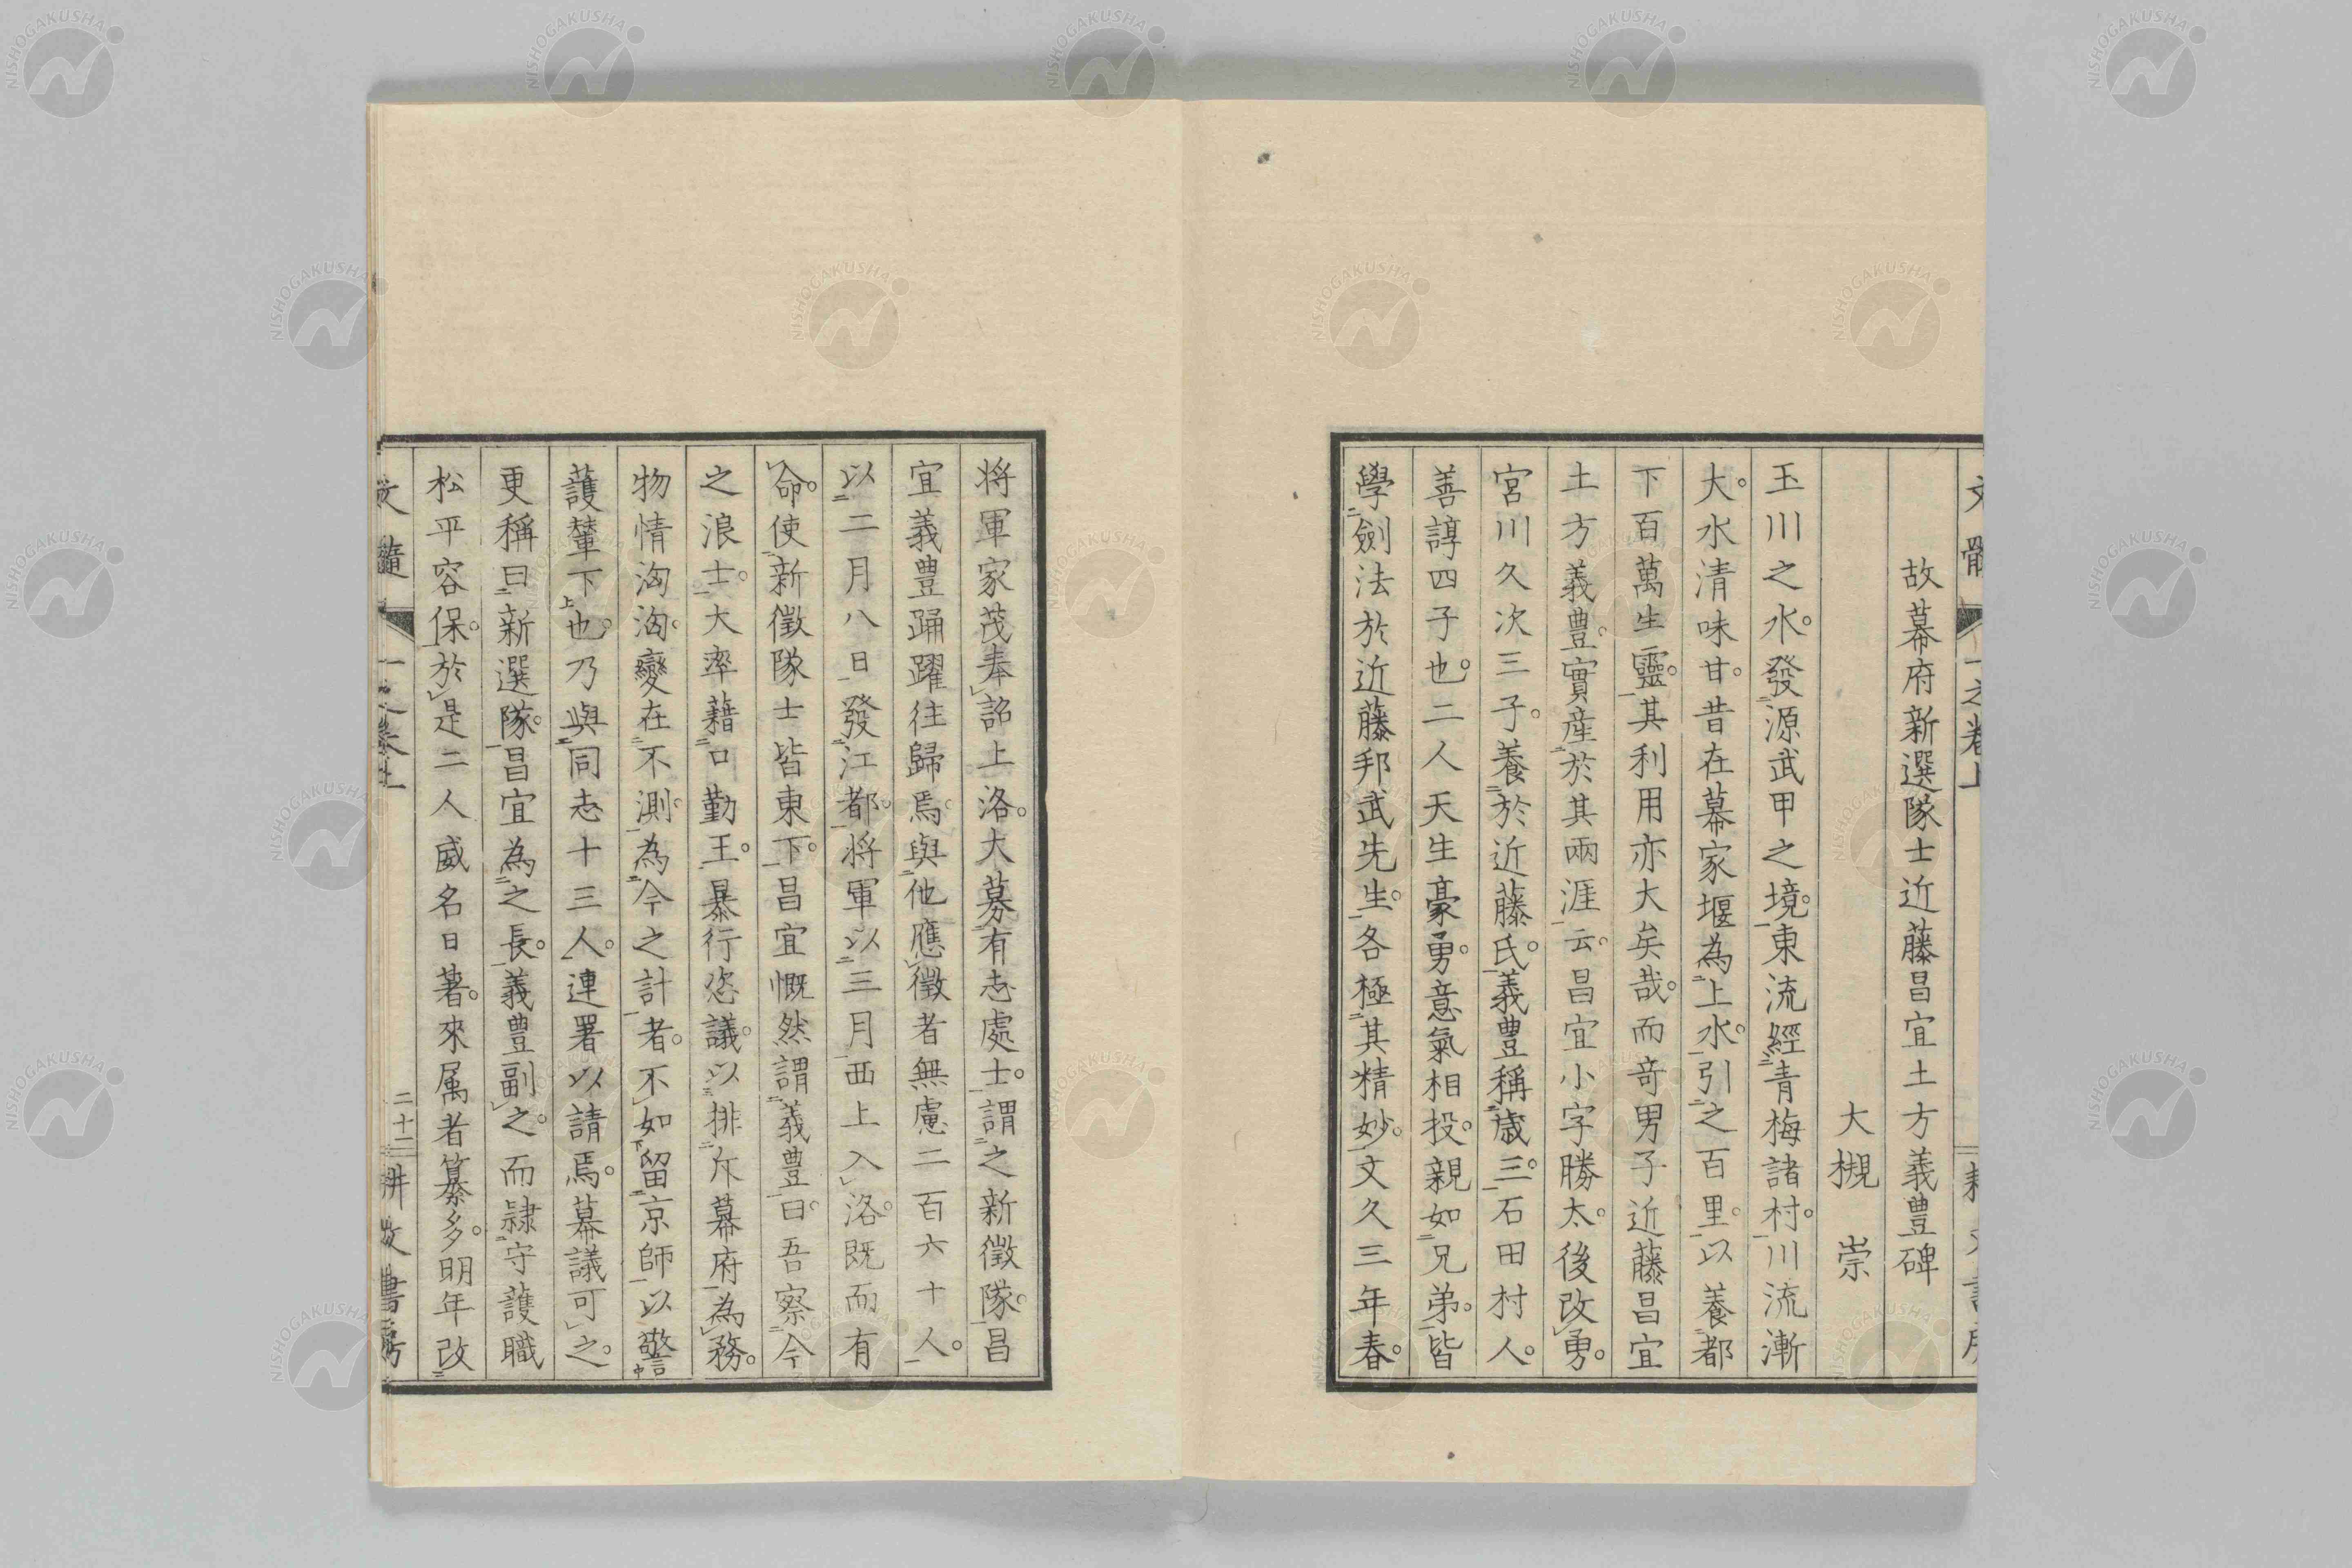 故幕府新選隊士近藤昌宜土方義豊碑
大槻　崇
玉川之水。發源武甲之境。東流經青梅諸村。川流漸
大。水清味甘。昔在幕家堰為上水。引之百里。以養都
下百萬生靈。其利用亦大矣哉。而奇男子近藤昌宜
土方義豊。實産於其兩涯云。昌宜小字勝太。後改勇。
宮川久次三子。養於近藤氏。義豊稱歳三。石田村人。
善諄四子也。二人天生豪勇。意氣相投。親如兄弟。皆
學劍法於近藤邦武先生。各極其精妙。文久三年春。
将軍家茂奉詔上洛。大募有志處士。謂之新徴隊。昌
宜義豊踊躍往歸焉。與他應徴者無慮二百六十人。
以二月八日發江都。将軍以三月西上入洛。既而有
命。使新徴隊士皆東下。昌宜慨然謂義豊曰。吾察今
之浪士。大率藉口勤王。暴行恣議。以排斥幕府為務。
物情洶洶。變在不測。為今之計者。不如留京師以警
護輦下也。乃與同志十三人。連署以請焉。幕議可之。
更稱曰新選隊。昌宜為之長。義豊副之。而隷守護職
松平容保。於是二人威名日著。來属者纂多。明年改
文髄
二十二
NISHOGAKUSHA